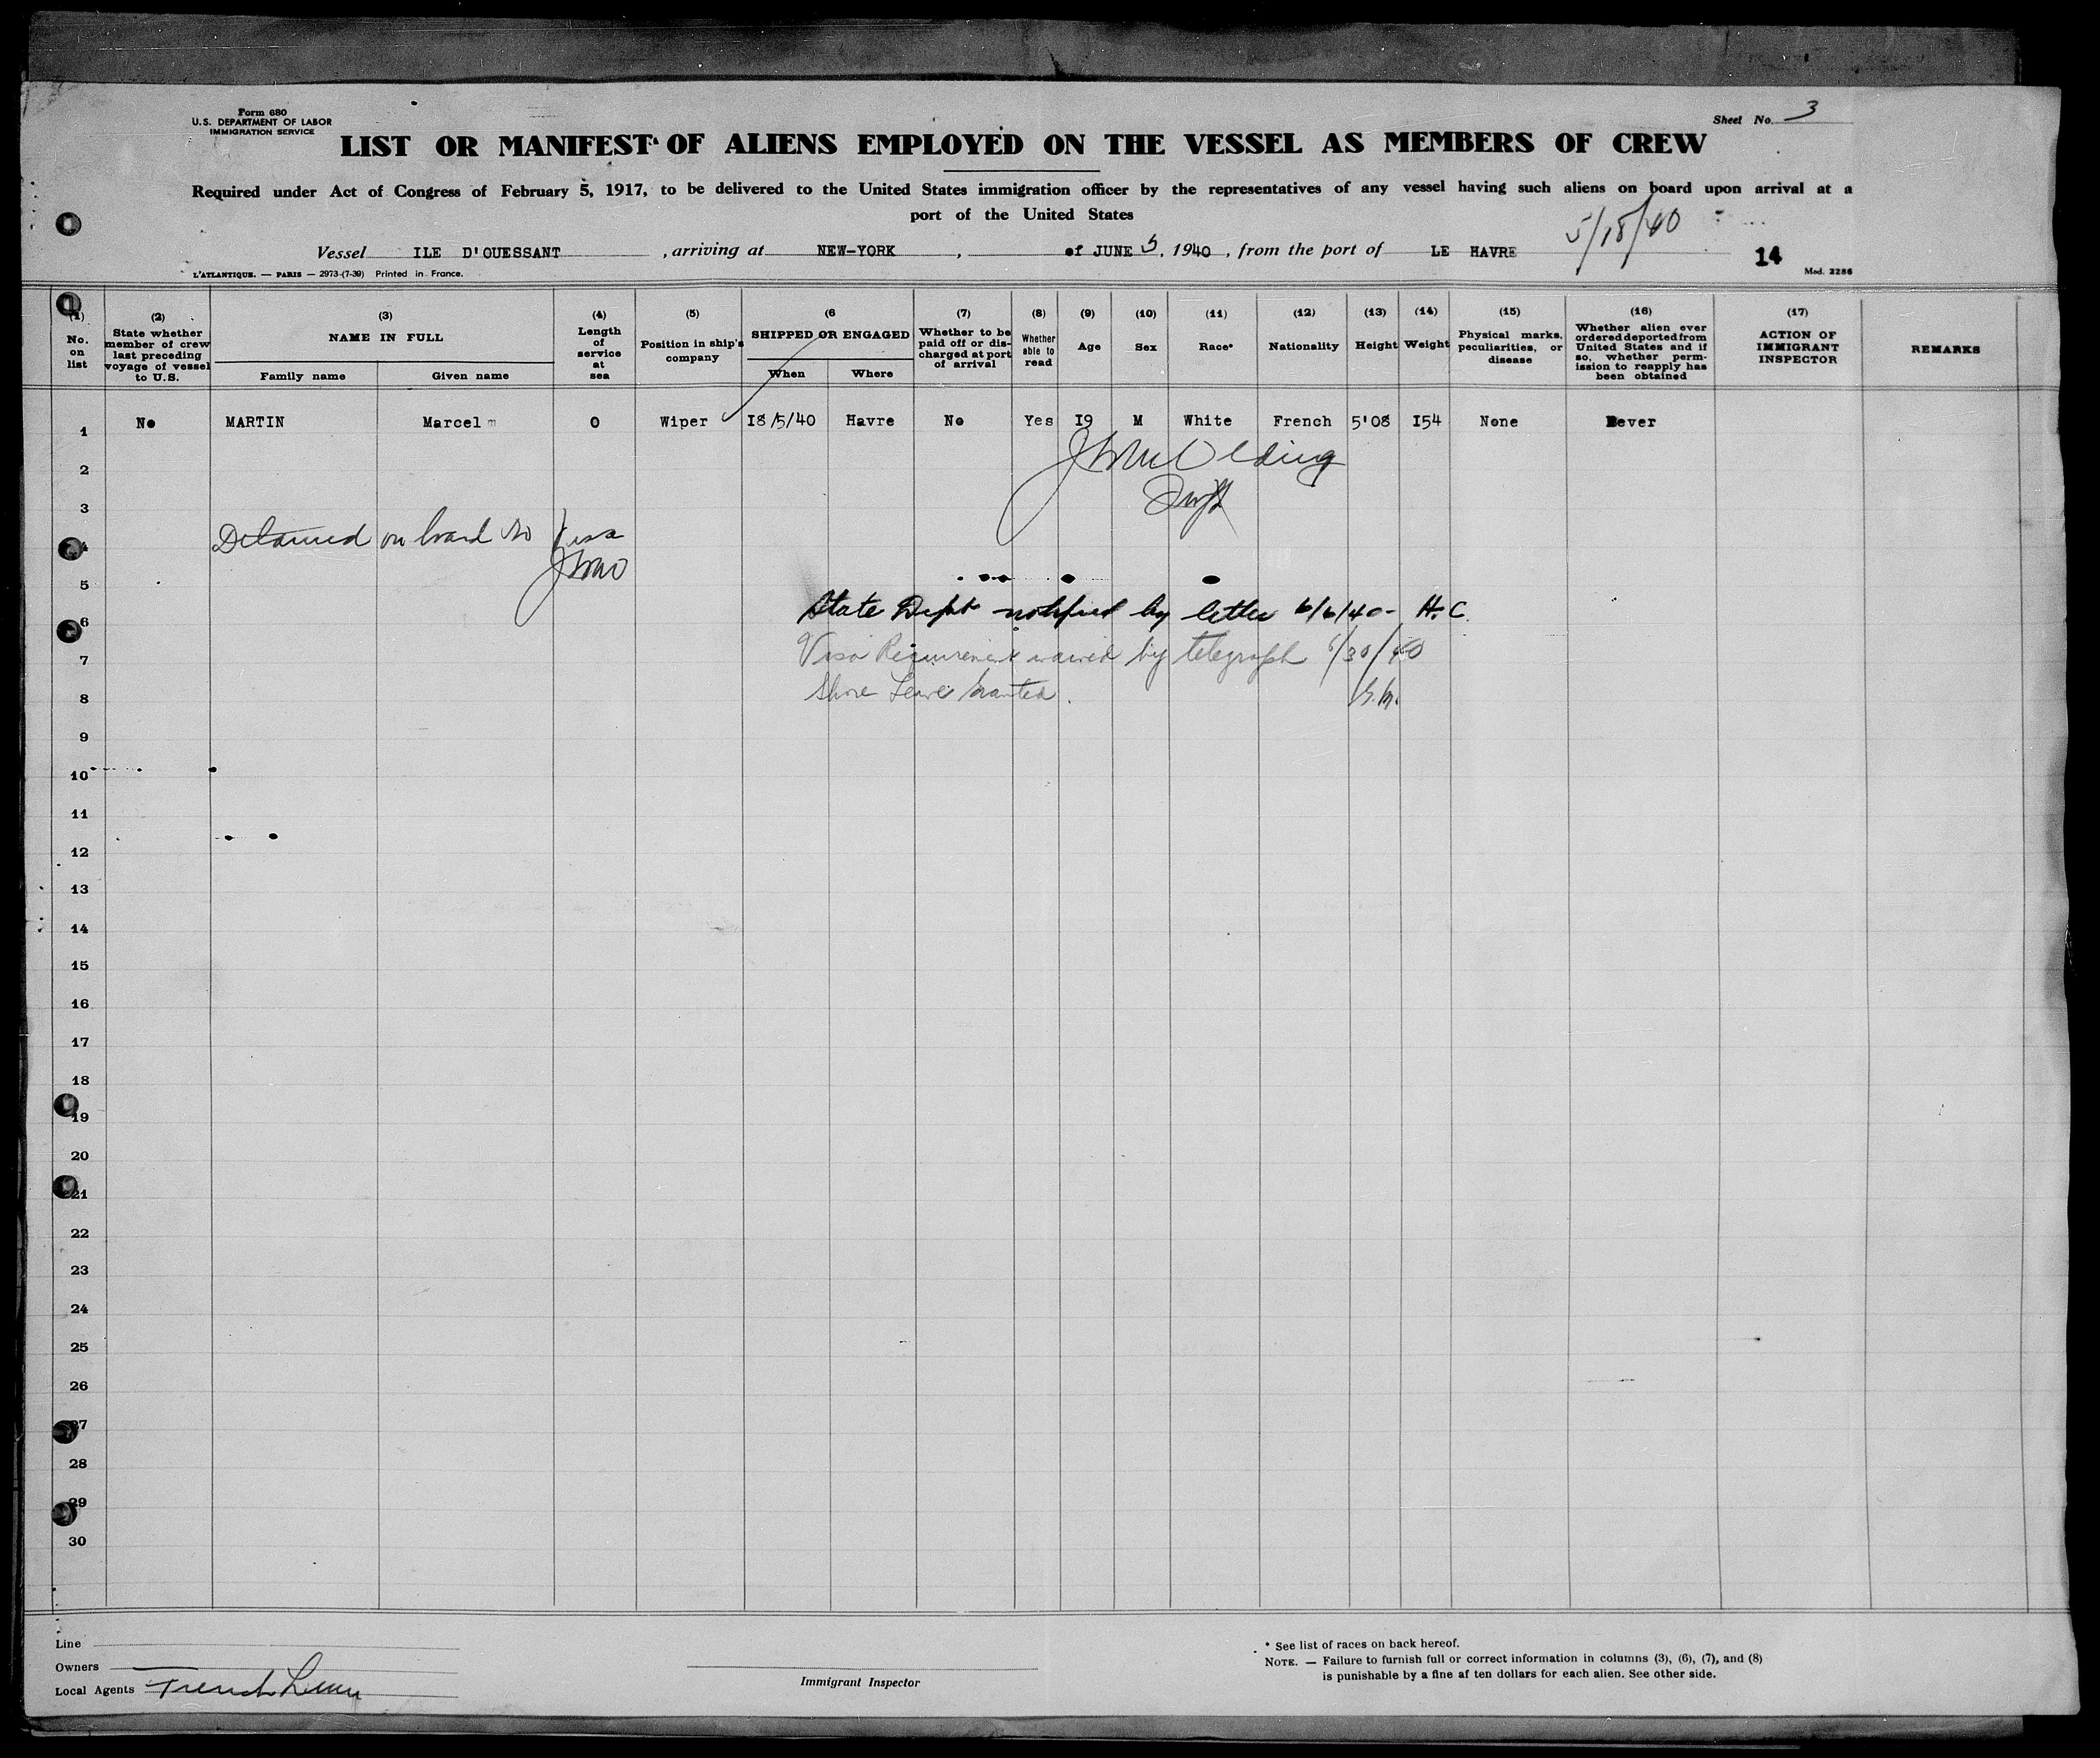 Form 680
U.S. DEPARTMENT OF LABOR
IMMIGRATION SERVICE
Sheet No. 3
LIST OR MANIFEST OF ALIENS EMPLOYED ON THE VESSEL AS MEMBERS OF CREW
Required under Act of Congress of February 5, 1917, to be delivered to the United States immigration officer by the representatives of any vessel having such aliens on board upon arrival at a
port of the United States
5/18/40
Vessel ILE D'OUESSANT, arriving at NEW-YORK, of JUNE 5, 1940, from the port of LE HAVRE
14
L'ATLANTIQUE. — PARIS — 2973-(7-39) Printed in France.
Mod. 2286
(1) No. on list
(2) State whether member of crew last preceding voyage of vessel to U.S.
(3) NAME IN FULL Family name Given name
(4) Length of service at sea
(5) Position in ship's company
(6 SHIPPED OR ENGAGED When Where
(7) Whether to be paid off or discharged at port of arrival
(8) Whether able to read
(9) Age
(10) Sex
(11) Race*
(12) Nationality
(13) Height
(14) Weight
(15) Physical marks, peculiarities, or disease
(16) Whether alien ever ordered deported from United States and if so, whether permission to reapply has been obtained
(17) ACTION OF IMMIGRANT INSPECTOR
REMARKS
1 No MARTIN Marcel 0 Wiper 18/5/40 Havre No Yes I9 M White French 5'08 I54 None Never
2
3
4 Detained on board no Visa
5
6 State Dept notified by letter 6/6/40- H.C.
7 Visa Requirement waived by telegraph 6/30/40
8 Shore Leave Granted.
9
10
11
12
13
14
15
16
17
18
19
20
21
22
23
24
25
26
27
28
29
30
Line
Owners
Local Agents French Line
Immigrant Inspector
* See list of races on back hereof.
NOTE. — Failure to furnish full or correct information in columns (3), (6), (7), and (8)
is punishable by a fine af ten dollars for each alien. See other side.